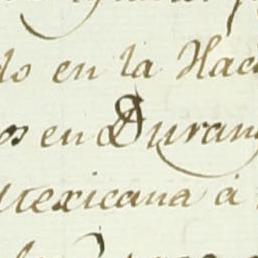 do en la Hac
os en Duran
Mexicana á